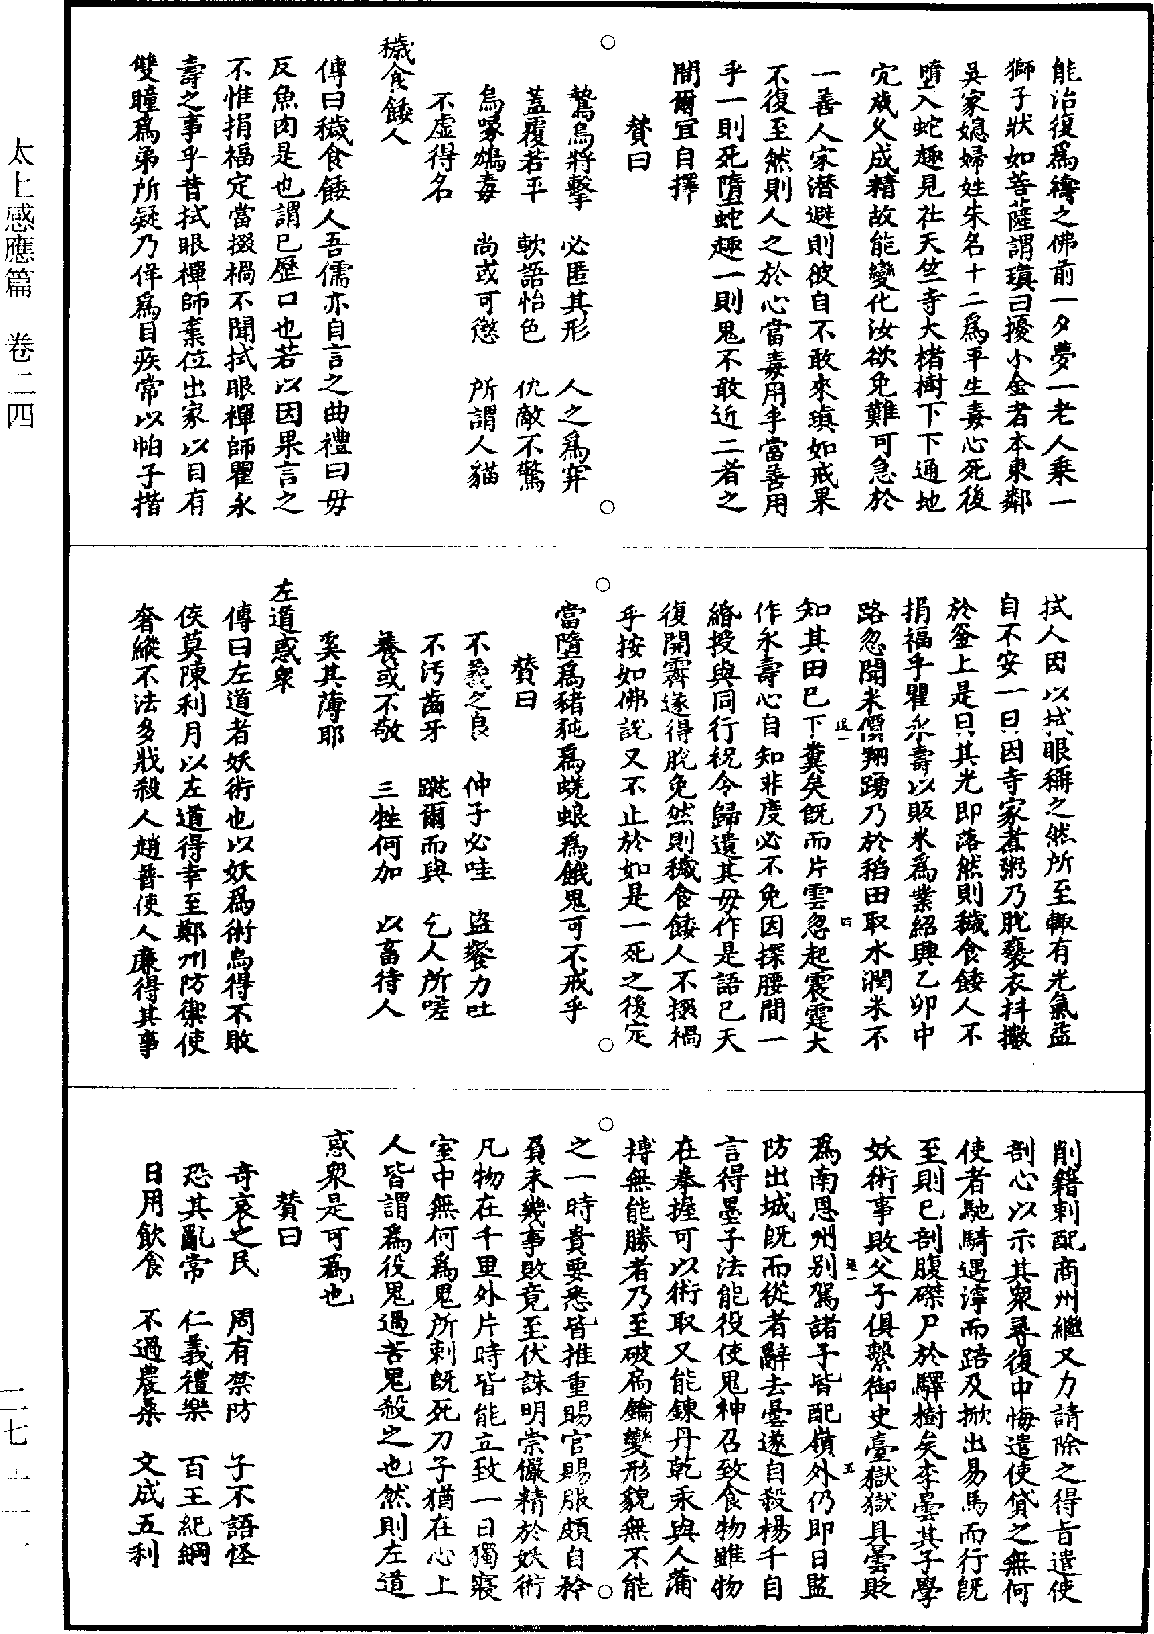 太上感應篇 卷二四
能治復爲禱之佛前一夕夢一老人乗一
獅子狀如菩薩謂瑱曰擾小金者本東鄰
吳家媳婦姓朱名十二爲平生毒心死後
墮入蛇趣見社天竺寺大楮樹下下通地
穴成父成精故能變化汝欲免難可急於
一善人家潛避則彼自不敢來瑱如戒果
不復至然則人之於心當毒用乎當善用
乎一則死墮蛇趣一則鬼不敢近二者之
間爾宜自擇
贊曰
鷙鳥將擊 必匿其形 人之爲穽
蓋覆若平 軟語怡色 仇敵不驚
烏喙鴆毒 尚或可懲 所謂人貓
不虛得名
穢食餧人
傳曰穢食餧人吾儒亦自言之曲禮曰毋
反魚肉是也謂已歷口也若以因果言之
不惟捐福定當掇禍不聞拭眼禪師瞿永
壽之事乎昔拭眼禪師棄位出家以目有
雙瞳爲弟所疑乃佯爲目疾常以帕子揩
拭人因以拭眼稱之然所至輙有光氣益
自不安一日因寺家煮粥乃脫褻衣抖擻
於釜上是日其光即落然則穢食餧人不
捐福乎瞿永壽以販米爲業紹興乙卯中
路忽聞米價翔踴乃於稻田取水潤米不
知其田已下糞矣旣而片雲忽起震霆大
作永壽心自知非度必不免因探腰間一
緡授與同行祝令歸遺其母作是語已天
復開霽遂得脫免然則穢食餧人不掇禍
乎按如佛說又不止於如是一死之後定
當墮爲豬㹠爲蜣蜋爲餓鬼可不戒乎
贊曰
不義之良 仲子必哇 盜餐力吐
不汚齒牙 蹴爾而與 乞人所嗟
養或不敬 三牲何加 以畜待人
奚其薄耶
左道惑衆
傳曰左道者妖術也以妖爲術烏得不敗
侯莫陳利月以左道得幸至鄭州防禦使
奢縱不法多戕殺人趙普使人廉得其事
削籍刺配商州繼又力請除之得旨遣使
剖心以示其衆尋復中悔遣使貸之無何
使者馳騎遇濘而踣及掀出易馬而行旣
至則已剖腹磔尸於驛樹矣李曇其子學
妖術事敗父子俱繫御史臺獄獄具曇貶
爲南恩州别駕諸子皆配嶺外仍即日監
防出城旣而從者辭去曇遂自殺楊千自
言得墨子法能役使鬼神召致食物雖物
在拳握可以術取又能鍊丹乾汞與人蒲
搏無能勝者乃至破扃鑰變形貌無不能
之一時貴要悉皆推重賜官賜服頗自矜
負未幾事敗竟至伏誅明崇儼精於妖術
凡物在千里外片時皆能立致一日獨寢
室中無何爲鬼所刺旣死刀子猶在心上
人皆謂爲役鬼過苦鬼殺之也然則左道
惑衆是可爲也
贊曰
奇衺之民 周有禁防 子不語怪
恐其亂常 仁義禮樂 百王紀綱
日用飲食 不過農桑 文成五利